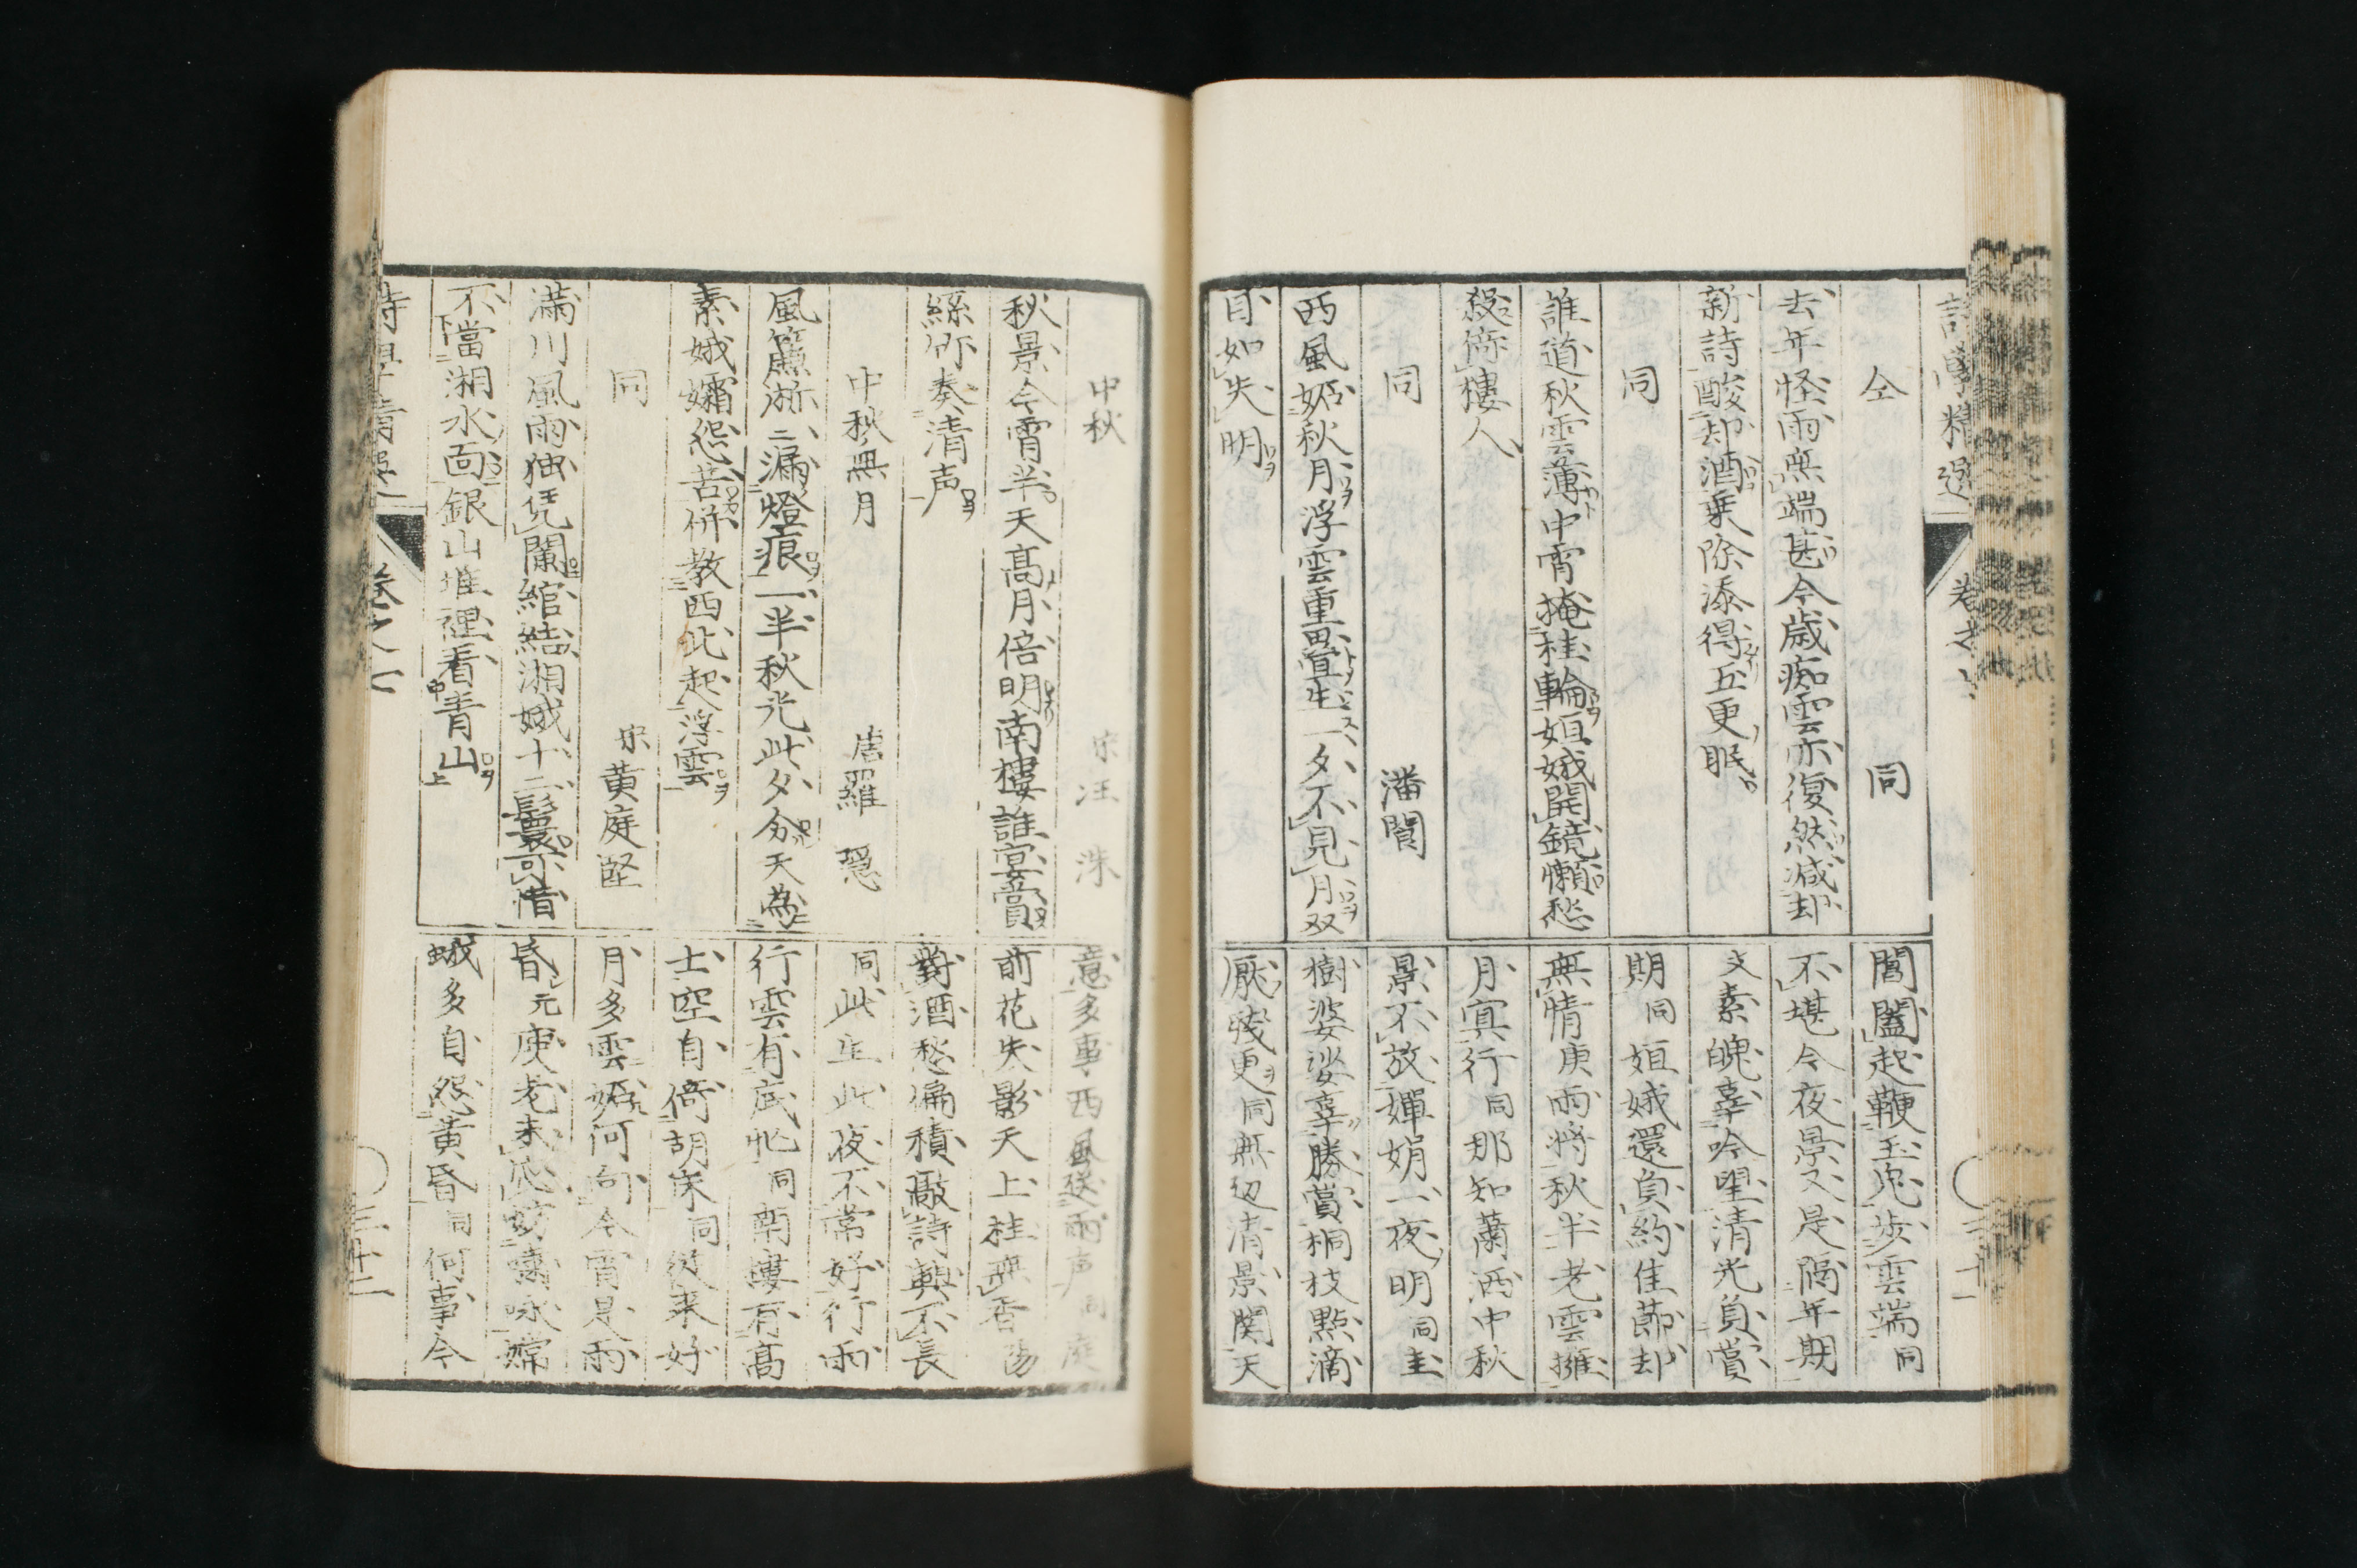 仝　同
去年怪雨無端甚今歳痴雲亦復然減却
新詩酸却酒乗除添得五更眠
同
誰道秋雲薄中霄掩桂輪姮娥開鏡懶愁
殺倚樓人
同　潘閬
西風妬秋月浮雲重畳生一夕不見月双
目如失明
閶闔起鞭玉兎歩雲端同
不堪今夜景又是隔年期
文素魄辜吟望清光負賞
期同姮娥還負約佳節却
無情庚雨将秋半老雲擁
月寘行同那知蕭洒中秋
景不放嬋娟一夜明同圭
樹婆娑辜勝賞桐枝點滴
厭残更同無辺清景関天
中秋　宋汪洙
秋景今霄半天高月倍明南樓誰宴賞
絲竹奏清声
中秋無月　唐羅隠
風簾淅二漏燈痕一半秋光此夕分天為
素娥孀怨苦併教西北起浮雲
同　宋黄庭堅
満川風雨独凭闌綰結湘娥十二鬟可惜
不當湘水面銀山堆裡看青山
意多事西風送雨声同庭
前花失影天上桂無香陽
對酒愁偏積敲詩興不長
同此生此夜不常好行雨
行雲有底忙同南樓有高
士空自倚胡床同從来好
月多雲妬何向今霄是雨
昏元庾老未応妨嘯咏嫦
娥多自怨黄昏同何事今
卷之七
三十二